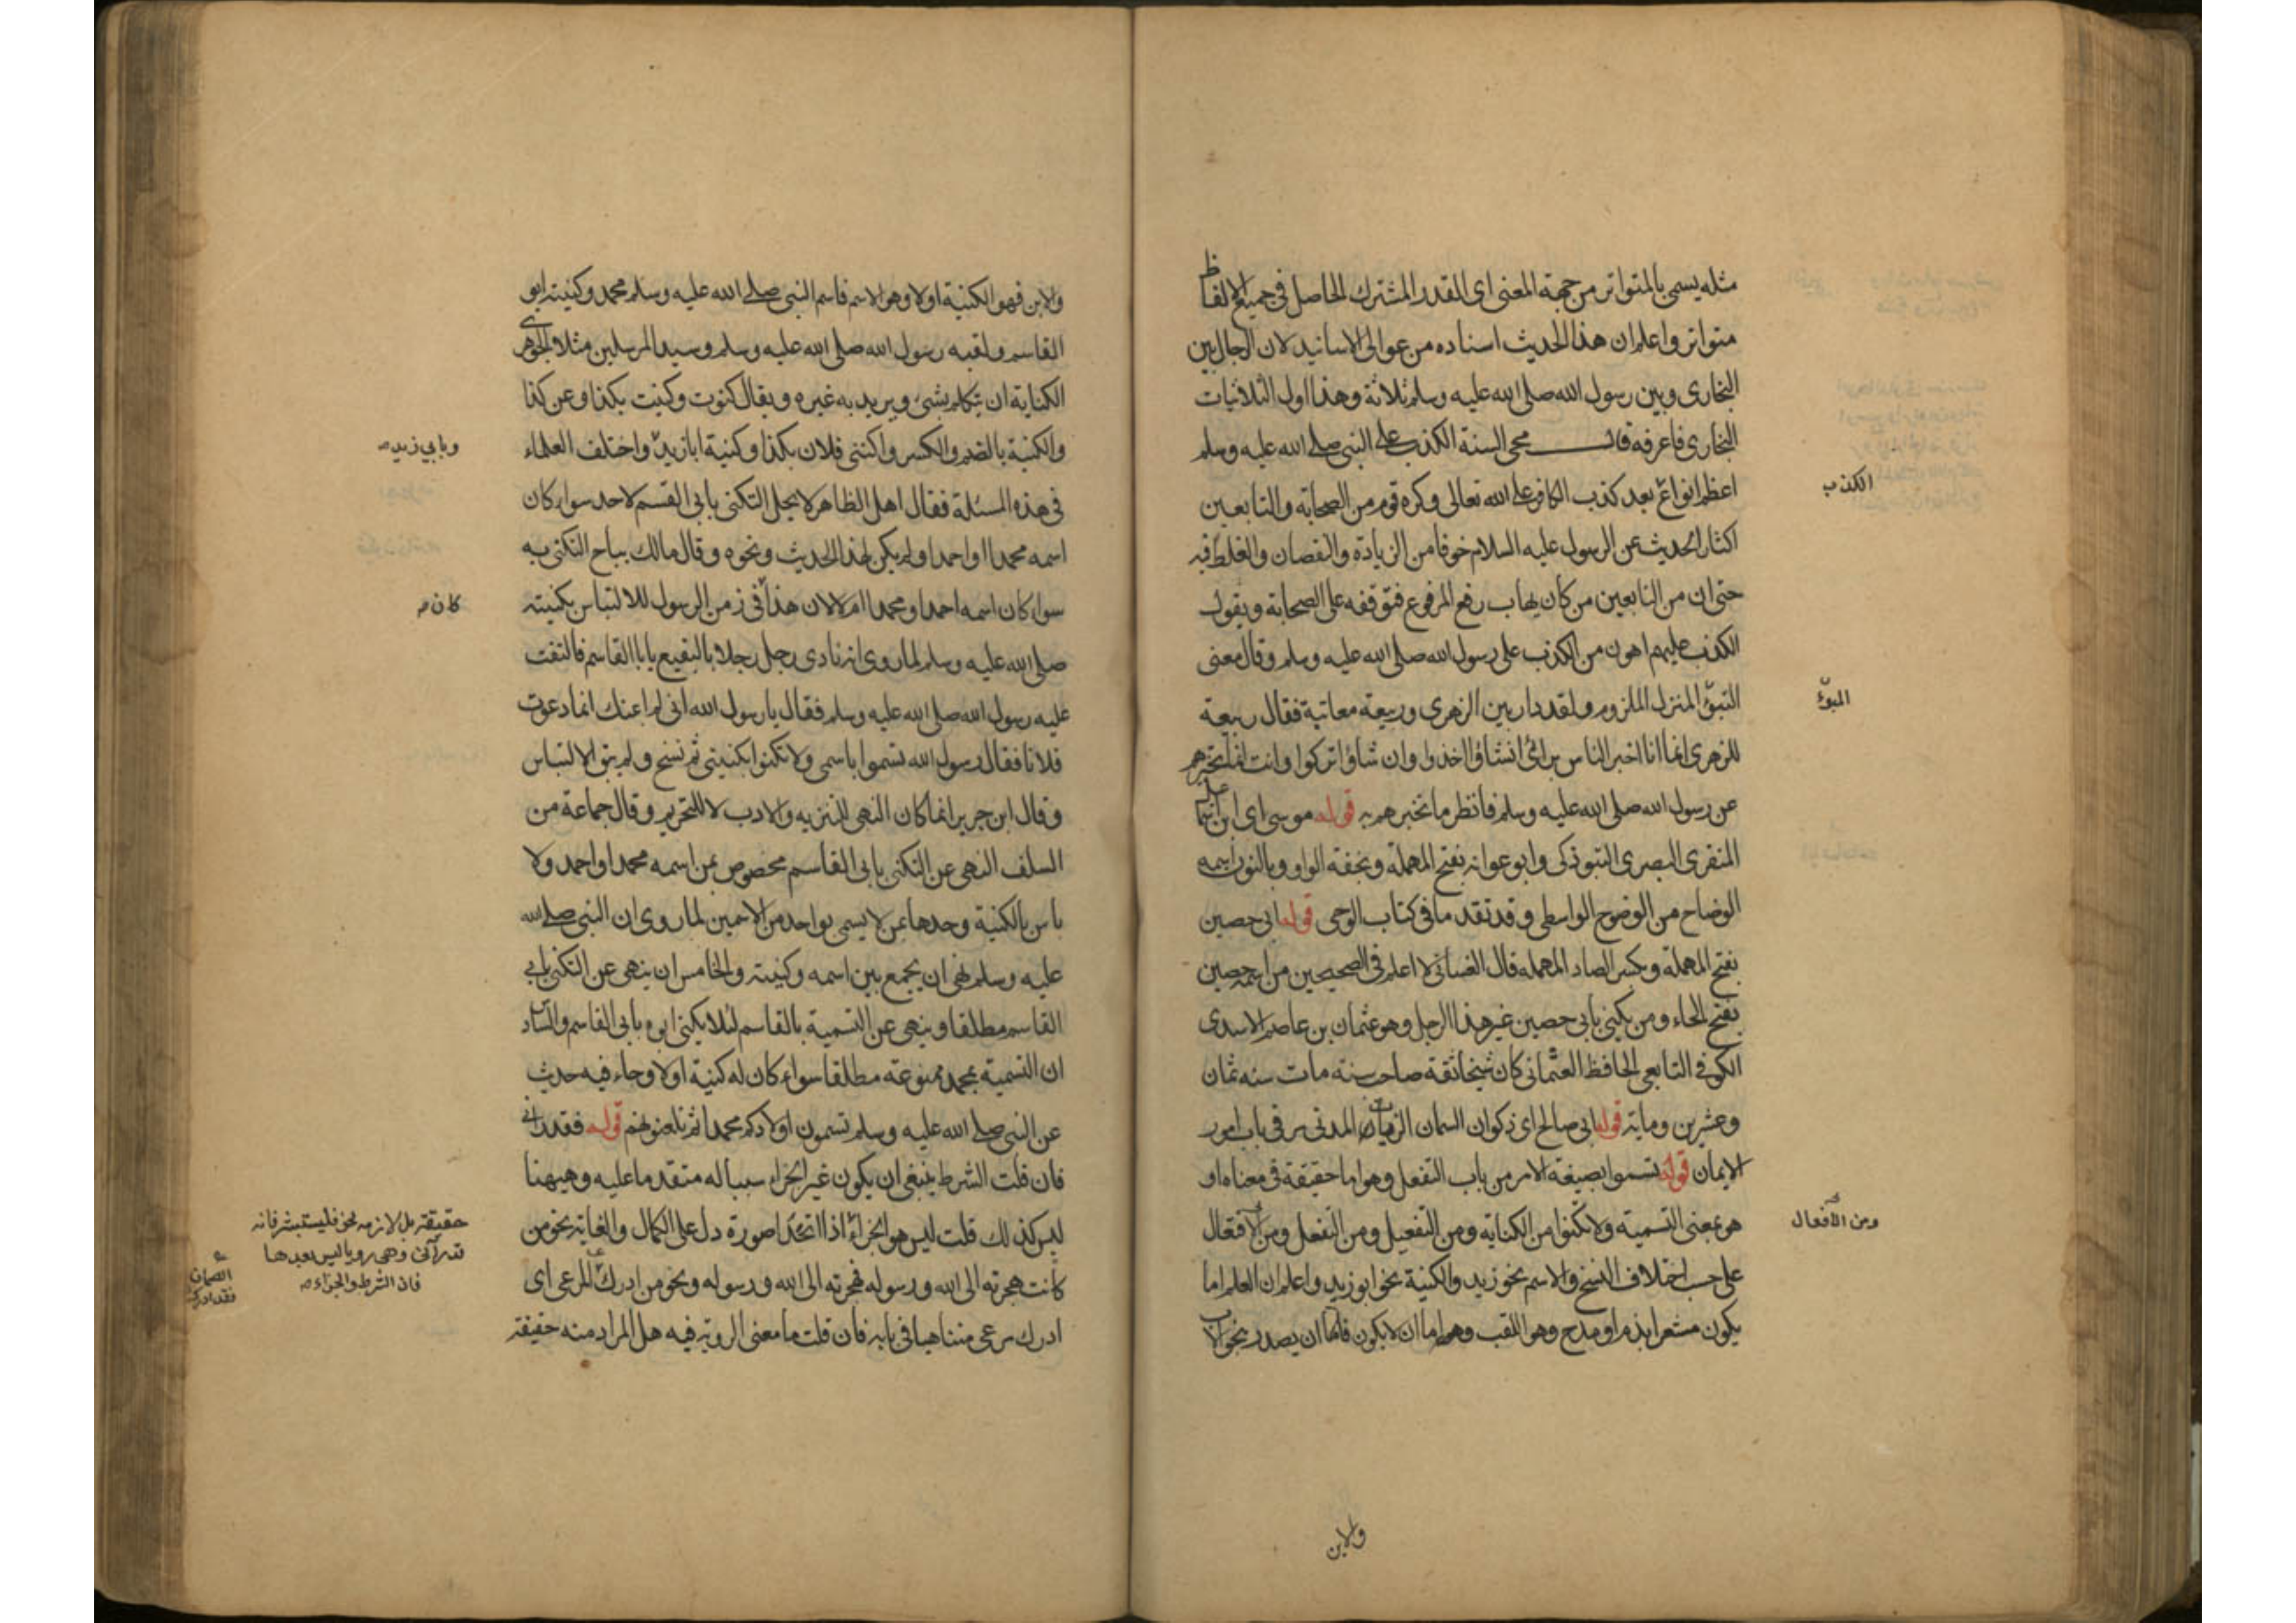 مثله يسمى بالمتواتر من جهة المعنى اى القدر المشترك الحاصل فى جميع الالفاظ
متواتر واعلم ان هذا الحديث اسناده من عوالى الاسانيد لان الرجال بين
البخارى وبين رسول الله صلى الله عليه وسلم ثلاثة وهذا اول الثلاثيات
البخارى فاعرفه قال محى السنة الكذب على النبى صلى الله عليه وسلم
اعظم انواع بعد كذب الكافر على الله تعالى وكره قوم من الصحابة والتابعين
الكذب
اكثار الحديث عن الرسول عليه السلام خوفا من الزيادة والنقصان والغلط فيه
حتى ان من التابعين من كان يهاب رفع المرفوع فتوقفه على الصحابة ويقول
الكذب عليهم اهون من الكذب على رسول الله صلى الله عليه وسلم وقال معنى
التبوّئ المنزل الملزوم ولقد دار بين الزهرى وربيعة معاتبة فقال ربيعة
المبوّء
للزهرى انما انا اخبر الناس برائى ان شاؤا اخذوا وان شاؤا تركوا وانت انما تخبرهم
عن رسول الله صلى الله عليه وسلم فانظر ما تخبرهم به قوله موسى اى ابن اسمعيل
المنقرى البصرى التبوذكى وابو عوانه بفتح المهملة وبخفة الواو وبالنون اسمه
الوضاح من الوضوح الواسطى وقد تقدما فى كتاب الوحى قوله ابى حصين
بفتح المهملة وبكسر الصاد المهمله قال الغسانى لا اعلم فى الصحيحين من اسمه حصين
بفتح الحاء ومن يكنى بابى حصين غير هذا الرجل وهو عثمان بن عاصم الاسدى
الكوفى التابعى الحافظ العثمانى كان شيخا ثقة صاحب سنة مات سنه ثمان
وعشرين وماية قوله ابى صالح اى ذكوان السمان الزيات المدنى مر فى باب امور
الايمان قوله تسموا بصيغة الامر من باب التفعل وهو اما حقيقة فى معناه او
هو بمعنى التسمية ولا تكنوا من الكناية ومن التفعيل ومن التفعل ومن الافتعال
ومن الافعال
على حسب اختلاف النسخ والاسم نحو زيد والكنية نحو ابو زيد واعلم ان العلم اما
يكون مشعرا بذم او مدح وهو اللقب وهو اما ان لا يكون فاما ان يصدر بنحو الاب
والابن
والابن فهو الكنية او لا وهو الاسم فاسم النبى صلى الله عليه وسلم محمد وكنيته ابو
القاسم ولقبه رسول الله صلى الله عليه وسلم وسيد المرسلين مثلا والجوهرى
الكناية ان تكلم بشئ ويريد به غيره ويقال كنوت وكنيت بكذا وعن كذا
والكنية بالضم والكسر واكتنى فلان بكذا وكنية ابا زيد واختلف العلماء
وبابي زيد
فى هذه المسئلة فقال اهل الظاهر لا يحل التكنى بابى القسم لاحد سواء كان
اسمه محمدا او احمد او لم يكن لهذا الحديث ونحوه وقال مالك يباح التكنى به
سواء كان اسمه احمد او محمدا ام لا لان هذا فى زمن الرسول للالتباس بكنيته
كان
صلى الله عليه وسلم لما روى انه نادى رجل رجلا بالبقيع يا ابا القاسم فالتفت
عليه رسول الله صلى الله عليه وسلم فقال يا رسول الله انى لم اعنك انما دعوت
فلانا فقال رسول الله تسموا باسمى ولا تكنوا بكنيتى ثم نسخ ولم يبق الالتباس
وقال ابن جرير انما كان النهى للتنزيه والادب لا للتحريم وقال جماعة من
السلف النهى عن التكنى بابى القاسم مخصوص بمن اسمه محمد او احمد ولا
باس بالكنية وحدها بمن لا يسمى بواحد من الاسمين لما روى ان النبى صلى الله
عليه وسلم نهى ان يجمع بين اسمه وكنيته والخامس ان ينهى عن التكنى بابى
القاسم مطلقا وينهى عن التسمية بالقاسم لئلا يكنى ابوه بابى القاسم والسادس
ان التسمية بمحمد ممنوعة مطلقا سواء كان له كنية او لا وجاء فيه حديث
عن النبى صلى الله عليه وسلم تسمون اولادكم محمدا ثم تلعنونهم قوله فقد رانى
فان قلت الشرط ينبغى ان يكون غير الجزاء سببا له متقدما عليه وههنا
ليس كذلك قلت ليس هو الجزاء اذا اتحدا صورة دل على الكمال والغاية نحو من
حقيقة بل لازمه نحو فليستبشر فانه
قد رآنى وهى رويا ليس بعدها
فان الشرط والجزاء
كانت هجرته الى الله ورسوله فهجرته الى الله ورسوله ونحو من ادرك المرعى اى
الصمان
فقد ادرك
ادرك مرعى متناهيا فى بابه فان قلت ما معنى الروية فيه هل المراد منه حقيقة